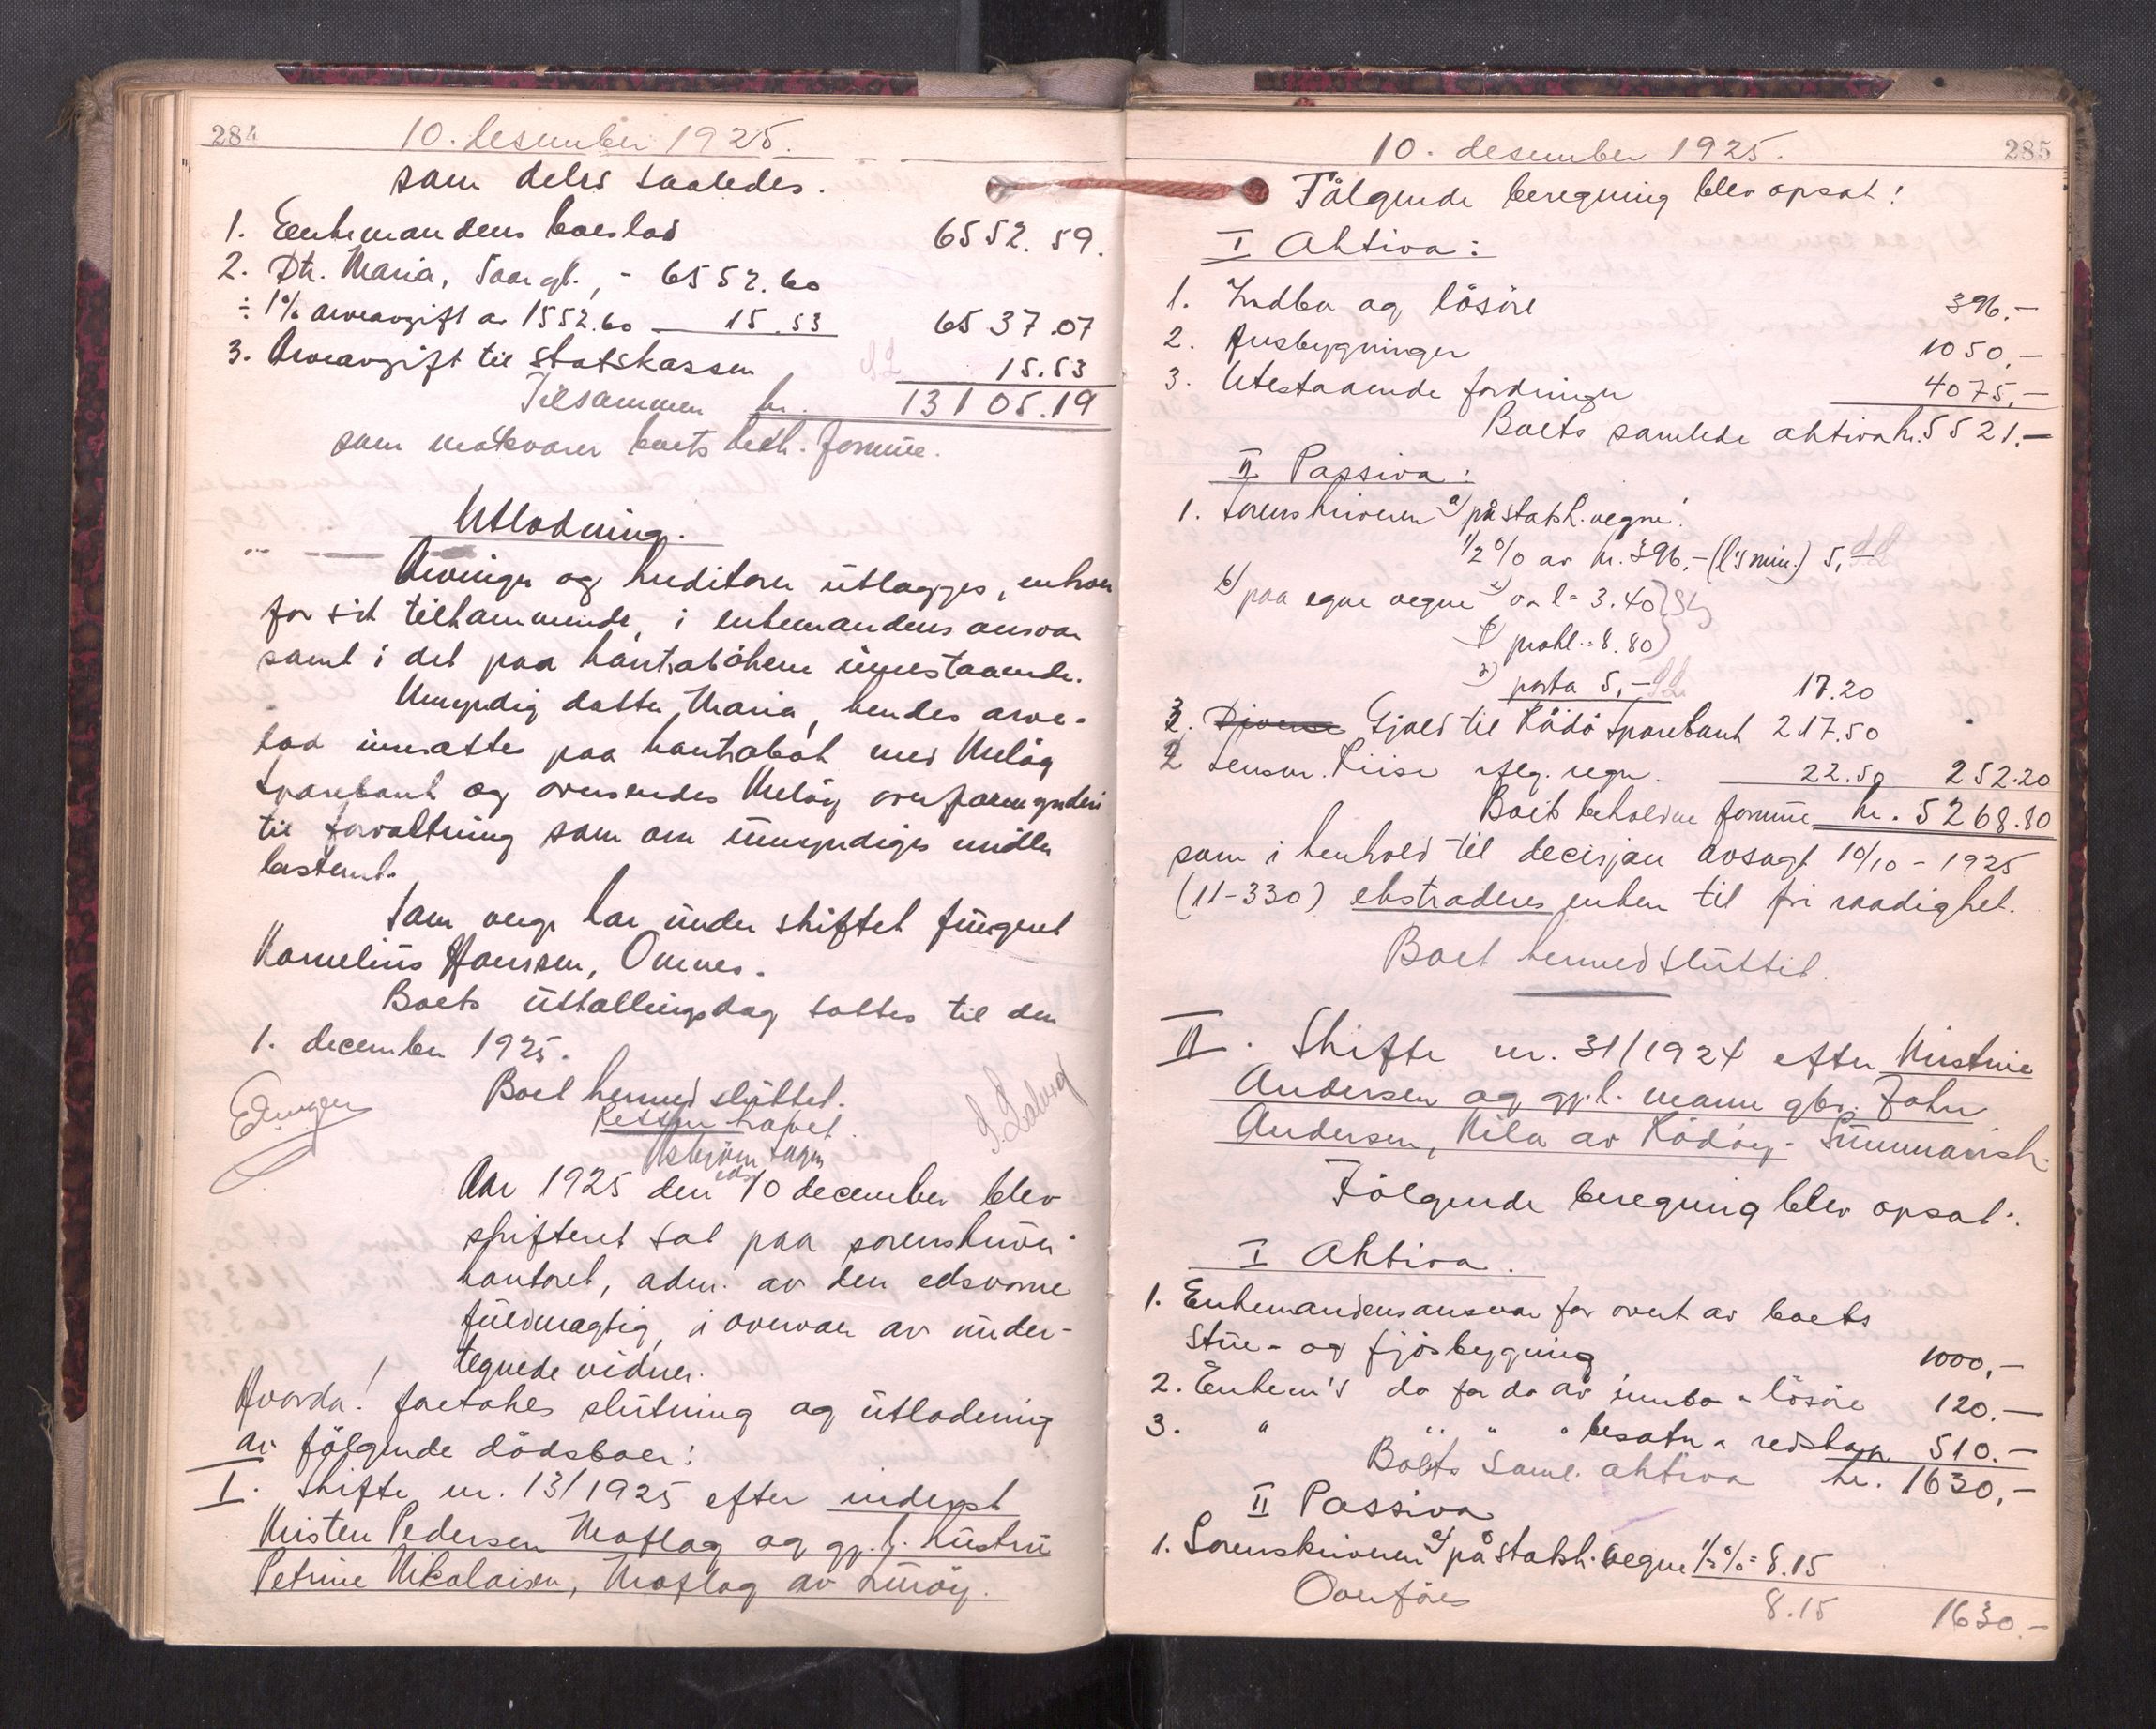 284
10. desember 1925.
som deles saaledes.
1. Enkemandens boeslod 6552.59.
2. Dtr. Maria, 5 aar gl., - 6552.60
÷ 1% arveavgift av 1552.60 15.53 6537.07
3. Arveavgift til statskassen 15.53
Tilsammen kr. 13105.19
som motsvarer boets beh. formue.
Utlodning.
Arvinger og kreditorer utlægges, enhver
for sit tilkommende, i enkemandens ansvar
samt i det paa kontrabøkene innestaaende.
Umyndig datter Maria, hendes arve-
lod innsættes paa kontrabok med Meløy
Sparebank og oversendes Meløy overformynderi
til forvaltning som om umyndiges midler
bestemt.
Som verge har under skiftet fungert
Kornelius Hanssen, Ørnes.
Boets utlodningsdag sættes til den
1. december 1925.
Boet hermed sluttet.
Retten hævet.
Aar 1925 den 10 december blev
skifteret sat paa sorenskriver-
kontoret, adm. av den edsvorne
fuldmægtig, i overvær av under-
tegnede vidner.
Hvorda! foretokes slutning og utlodning
av følgende dødsboer:
I. Skifte nr. 13/1925 efter inderst
Kristen Pedersen Moflag og gj.l. hustru
Petrine Nikolaisen, Moflag av Lurøy.
10. desember 1925.
285
Følgende beregning blev opsat!
I Aktiva:
1. Indbo og løsøre 396.-
2. Husbygninger 1050.-
3. Utestaaende fordringer 4075,-
Boets samlede aktiva kr. 5521.-
II Passiva:
1. Sorenskriveren a) på statsk. vegne:
1/2 % av kr. 396,- (l's min.) 5,-
b) paa egne vegne 3.40
prokl. 8.80
3) porto 5,- 17.20
3. Gjæld til Rödö Sparebank 217.50
2 Lensm. Riise iflg. regn. 22.50 252.20
Boets beholdne formue kr. 5268.80
som i henhold til decisjon avsagt 10/10 - 1925
(11-330) ekstraderes enken til fri raadighet.
Boet hermed sluttet.
II. Skifte nr. 31/1924 efter Kristine
Andersen og gj.l. mann gbr. John
Andersen, Kila av Rödöy. Summarisk.
Følgende beregning blev opsat:
I Aktiva.
1. Enkemandens ansvar for overt. av boets
stue- og fjösbygning 1000,-
2. Enkem's do for do av innbo - løsøre 120.-
3. " " " " besætn - redskap 510.-
Boets saml. aktiva kr. 1630,-
II Passiva
1. Sorenskriveren a) på statsk. vegne 1/2 % = 8.15
Overføres 8.15 1630.-